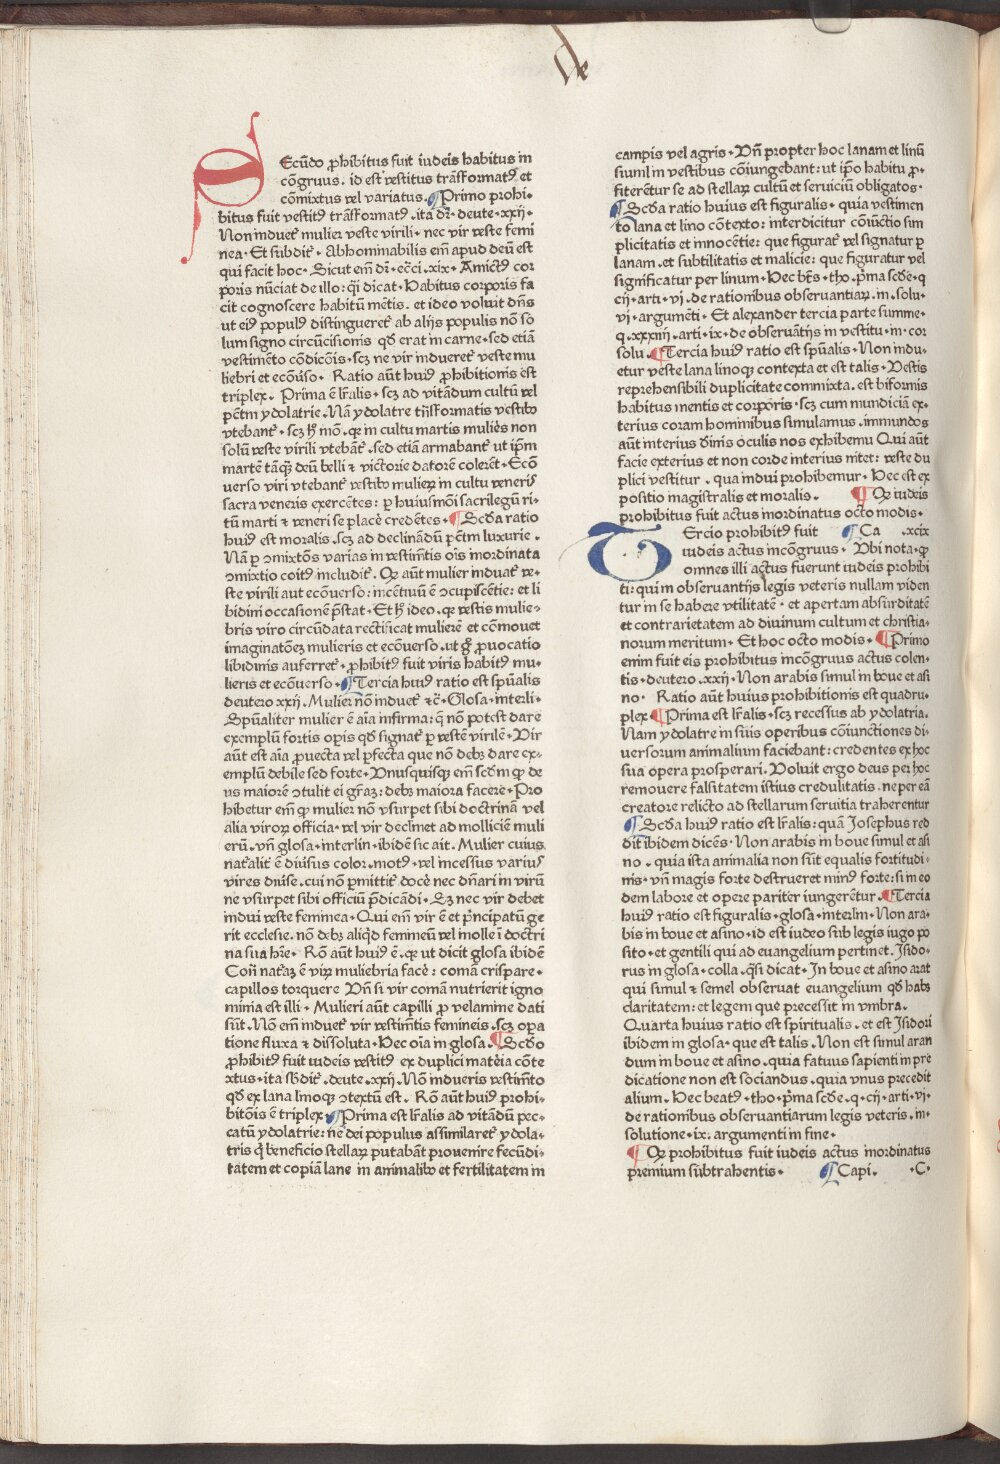 de
Secūdo ꝓhibitus fuit iudeis habitus in
cōgruus. id est vestitus trāsformatꝰ et
cōmixtus vel variatus. ¶Primo prohi⸗
bitus fuit vestitꝰ trāsformatꝰ .ita dr̄. deute. xxij.
Non induet̉ mulier veste virili. nec vir veste femi
nea. Et subdit̉. Abhominabilis em̄ apud deū est
qui facit hoc. Sicut em̄ dr̄. ecc̄i .xix. Amictꝰ cor
poris nūciat de illo: q̄si dicat. Habitus corporis fa
cit cognoscere habitū mētis. et ideo voluit dn̄s
ut eiꝰ populꝰ distingueret̉ ab alijs populis nō so
lum signo circūcisionis qḋ erat in carne. sed etiā
vestimēto cōdicōis. scꝫ ne vir indueret̉ veste mu
liebri et ecōuso. Ratio aūt huiꝰ ꝓhibitionis est
triplex. Prima ē lr̄alis. scꝫ ad vitādum cultū vel
pctm̄ ydolatrie. Nā ydolatre trāsformatis vestibꝰ
vtebant̉. scꝫ hͦ mō. qꝛ in cultu martis muliēs non
solū veste virili vtebāt̉. sed etiā armabant̉ ut ip̄m
martē tāqꝫ deū belli ⁊ victorie datorē colerēt. Ecō
uerso viri vtebant̉ vestibꝰ mulieꝝ in cultu veneris
sacra veneris exercētes: ꝑ huiusmōi sacrilegū ri⸗
tū marti ⁊ veneri se placē credētes. ¶Scḋa ratio
huiꝰ est moralis .scꝫ ad declinādū pctm̄ luxurie.
Nā ꝑ ꝯmixtōs varias in vestimētis oīs inordinata
ꝯmixtio coitꝰ includit̉. Qꝫ aūt mulier induat̉ ve⸗
ste virili aut ecōuerso: incētiuū ē ꝯcupiscētie: et li
bidini occasionē p̄stat. Et hͦ ideo. qꝛ vestis mulie⸗
bris viro circūdata rectificat mulierē et cōmouet
imaginatōeꝫ mulieris et ecōuerso. ut gͦ ꝓuocatio
libidinis auferret̉. ꝓhibitꝰ fuit viris habitꝰ mu⸗
lieris et ecōuerso. ¶Tercia huiꝰ ratio est spūalis
deutero xxij. Mulier nō induet̉ ⁊c̄. Glosa. interli.
Spūaliter mulier ē aīa infirma: q̄ nō potest dare
exemplū fortis oꝑis qḋ signat̉ ꝑ vestē virilē. Vir
aūt est aīa ꝓuecta vel ꝑfecta que nō debꝫ dare ex⸗
emplū debile sed forte. Vnusquisqꝫ em̄ scḋm qͦ de
us maiorē ꝯtulit ei gr̄aꝫ: debꝫ maiora facere. Pro
hibetur em̄ qͦ mulier nō vsurpet sibi doctrinā vel
alia viroꝝ officia. vel vir declinet ad molliciē muli
erū. vn̄ glosa. interlin. ibidē sic ait. Mulier cuius
nat̉alit̉ ē diūsus color. motꝰ. vel incessus varius
vires diūse. cui nō ꝑmittit̉ docē nec dn̄ari in virū
ne vsurpet sibi officiū p̄dicādi. Qꝫ nec vir debet
indui veste feminea. Qui em̄ vir ē et p̄ncipatū ge
rit ecclesie. nō debꝫ aliqͥd femineū vel molle ī doctri
na sua hr̄e. Rō aūt huiꝰ ē. qꝛ ut dicit glosa ibidē
Cont̉ nat̉aꝫ ē viꝝ muliebria facē: comā crispare.
capillos torquere Vn̄ si vir comā nutrierit igno
minia est illi. Mulieri aūt capilli ꝓ velamine dati
sūt. Nō em̄ induet̉ vir vestimētis femineis .scꝫ opa
tione fluxa ⁊ dissoluta. Hec oīa in glosa. ¶Scḋo
ꝓhibitꝰ fuit iudeis vestitꝰ ex duplici matēia cōte
xtus. ita sb̄dit̉ .deute. xxij. Nō indueris vestimēto
qḋ ex lana linoqꝫ ꝯtextū est. Rō aūt huiꝰ prohi⸗
bitōis ē triplex. ¶Prima est lr̄alis ad vitādū pec⸗
catū ydolatrie: ne dei populus assimilaret̉ ydola⸗
tris q̄ beneficio stellaꝝ putabāt prouenire fecūdi⸗
tatem et copiā lane in animalibꝰ et fertilitatem in
campis vel agris. Vn̄ propter hoc lanam et linū
simul in vestibus cōiungebant: ut ip̄o habitu ꝓ⸗
fiterētur se ad stellaꝝ cultū et seruiciū obligatos.
¶Scḋa ratio huius est figuralis. quia vestimen
to lana et lino cōtexto: interdicitur cōiūctio sim
plicitatis et innocētie: que figurat̉ vel signatur ꝑ
lanam. et subtilitatis et malicie: que figuratur vel
significatur per linum. Hec bt̄s. tho. p̄ma scḋe. q
cij. arti. vj .de rationibus obseruantiaꝝ .in. solu.
vj. argumēti. Et alexander tercia parte summe.
q. xxxiij .arti. ix. de obseruātijs in vestitu. in. cor
solu. ¶Tercia huiꝰ ratio est spūalis. Non indu⸗
etur veste lana linoqꝫ contexta et est talis. Vestis
reprehensibili duplicitate commixta. est biformis
habitus mentis et corporis. scꝫ cum mundiciā ex⸗
terius coram hominibus simulamus .immundos
aūt interius diuinis oculis nos exhibemu Qui aūt
facie exterius et non corde interius nitet: veste du
plici vestitur . qua indui prohibemur. Hec est ex
positio magistralis et moralis. ¶Qꝫ iudeis
prohibitus fuit actus inordinatus octo modis.
Tercio prohibitꝰ fuit ¶Ca .xcix
iudeis actus incōgruus. Vbi nota. qͦ
omnes illi actus fuerunt iudeis prohibi
ti: qui in obseruantijs legis veteris nullam viden
tur in se habere vtilitatē. et apertam absurditatē
et contrarietatem ad diuinum cultum et christia⸗
norum meritum. Et hoc octo modis. ¶Primo
enim fuit eis prohibitus incōgruus actus colen⸗
tis. deutero. xxij. Non arabis simul in boue et asi
no. Ratio aūt huius prohibitionis est quadru⸗
plex ¶Prima est lr̄alis. scꝫ recessus ab ydolatria.
Nam ydolatre in suis operibus cōiunctiones di⸗
uersorum animalium faciebant: credentes ex hoc
sua opera prosperari. Voluit ergo deus per hoc
remouere falsitatem istius credulitatis .ne per eā
creatore relicto ad stellarum seruitia traherentur
¶Scḋa huiꝰ ratio est lr̄alis: quā Josephus red
dit ibidem dicēs. Non arabis in boue simul et asi
no. quia ista animalia non sūt equalis fortitudi⸗
nis. vn̄ magis forte destrueret minꝰ forte: si in eo
dem labore et opere pariter iungerētur. ¶Tercia
huiꝰ ratio est figuralis. glosa. interlin. Non ara⸗
bis in boue et asino. id est iudeo sub legis iugo po
sito. et gentili qui ad euangelium pertinet. Jsido⸗
rus in glosa. colla. q̄si dicat. In boue et asino arat
qui simul ⁊ semel obseruat euangelium qḋ habꝫ
claritatem: et legem que precessit in vmbra.
Quarta huius ratio est spiritualis. et est Jsidori
ibidem in glosa. que est talis. Non est simul aran
dum in boue et asino. quia fatuus sapienti in pre
dicatione non est sociandus. quia vnus precedit
alium. Hec beatꝰ. tho. p̄ma scḋe. q. cij. arti. vj.
de rationibus obseruantiarum legis veteris. in.
solutione. ix. argumenti in fine.
¶Qꝫ prohibitus fuit iudeis actus inordinatus
premium subtrahentis. ¶Capi. .C.